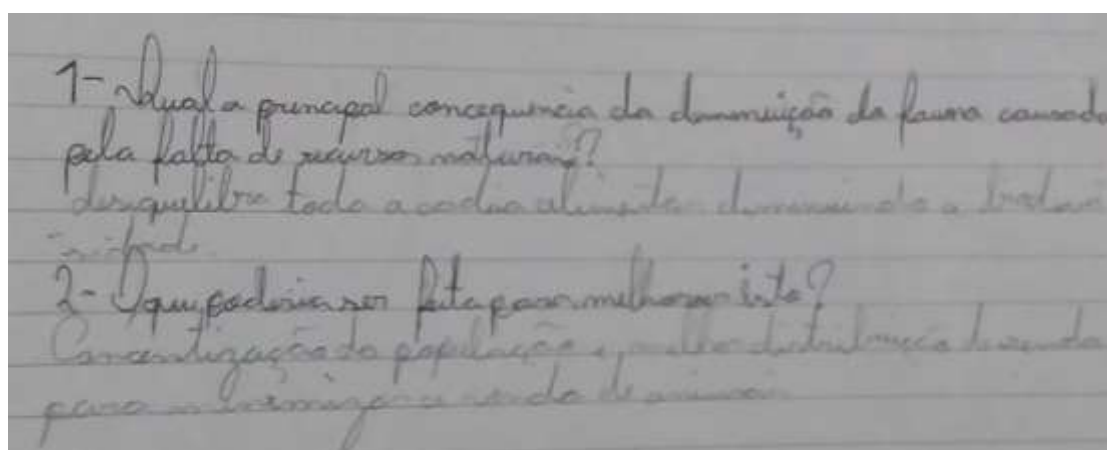 1- Qual a principal concequencia da diminuição da fauna causada
pela falta de recursos naturais?
desequilibra toda a cadeia alimentar diminuindo a
2- O que poderia ser feita para melhorar isto?
Concentização da população e melhor distribuição de renda
para a venda de animais